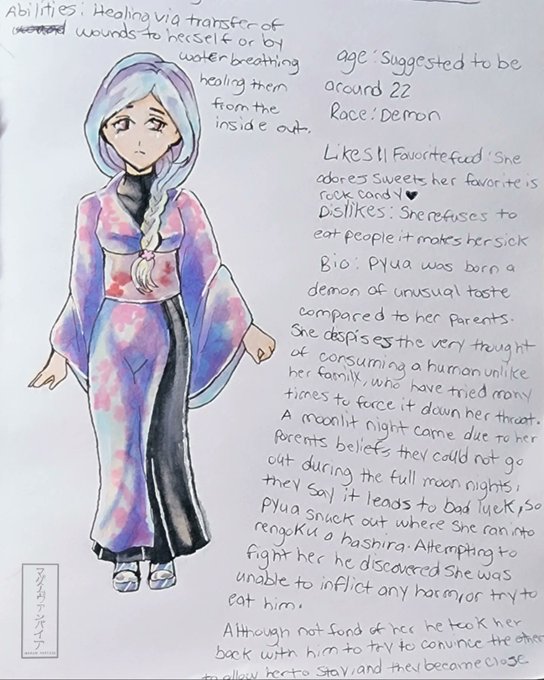 Abilities: Healing via transfer of
wounds to herself or by
water breathing
healing them
from the
inside out.
age: Suggested to be
around 22
Race: Demon
Likes!! Favorite food: She
adores sweets her favorite is
rock candy ♥
Dislikes: She refuses to
eat people it makes her sick
Bio: Pyua was born a
demon of unusual taste
compared to her parents.
She despises the very thought
of consuming a human unlike
her family, who have tried many
times to force it down her throat.
A moonlit night came due to her
parents beliefs they could not go
out during the full moon nights,
they say it leads to bad luck, so
Pyua snuck out where she ran into
rengoku a hashira. Attempting to
fight her he discovered she was
unable to inflict any harm, or try to
eat him.
Although not fond of her he took her
back with him to try to convince the other
to allow her to stay, and they became close